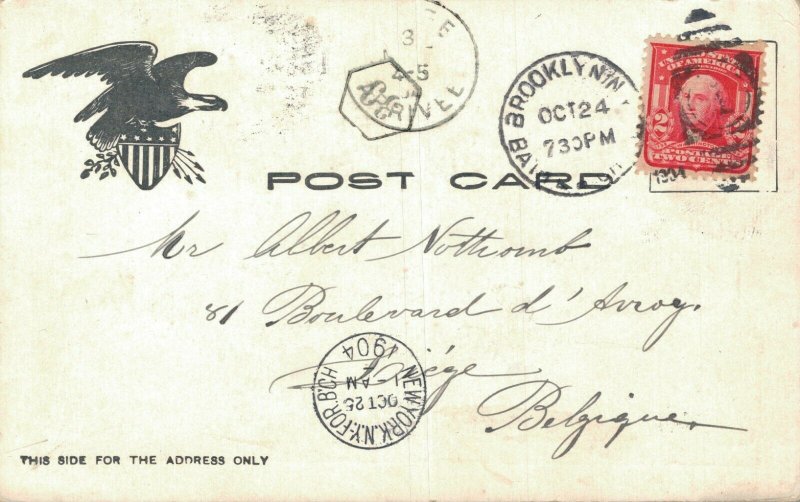 3
4-5
ARRIVEE
BROOKLYN N.Y.
OCT 24
730PM
1904
UNITED STATES
OF AMERICA
2 2
POSTAGE
TWO CENTS
POST CARD
Mr Albert Nothomb
81 Boulevard d'Avroy.
Liége
Belgique.
NEW YORK, N.Y.-FOR.B'CH
OCT 25
1 AM
1904
THIS SIDE FOR THE ADDRESS ONLY